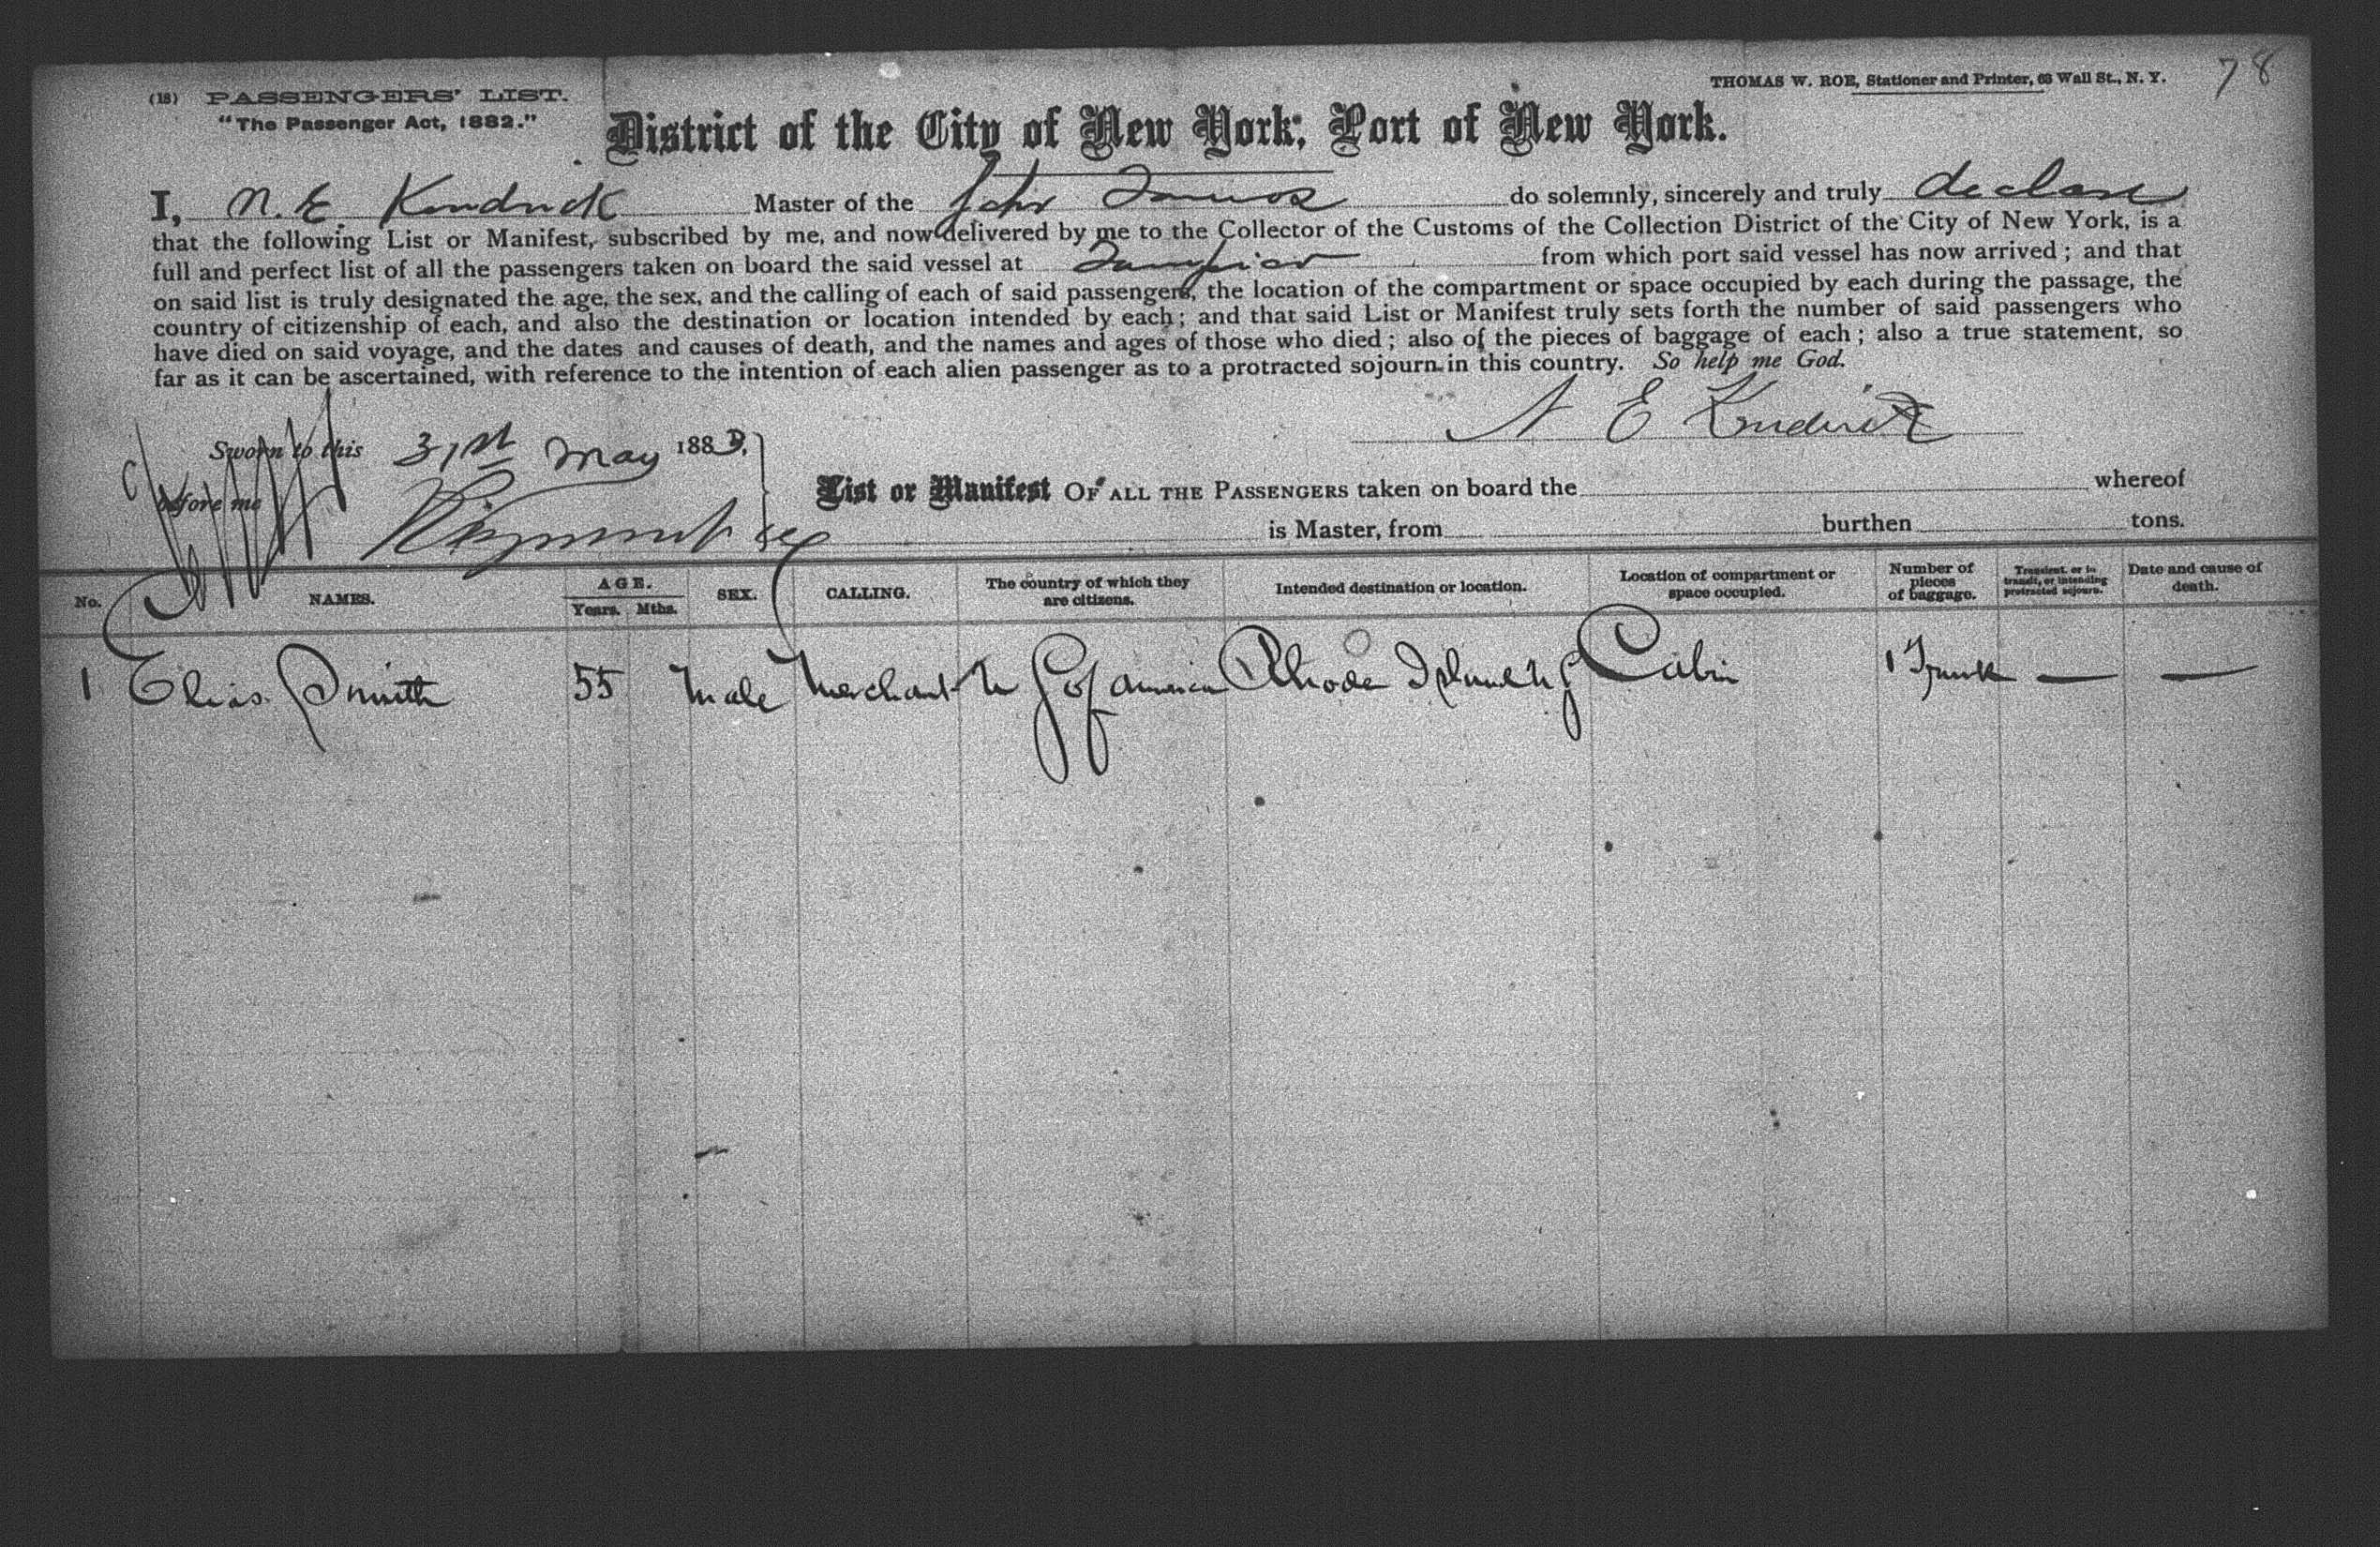 (18) PASSENGERS' LIST.
"The Passenger Act, 1882."
THOMAS W. ROE, Stationer and Printer, 68 Wall St., N. Y.
78
District of the City of New York; Port of New York.
I, N. E. Kendrick Master of the do solemnly, sincerely and truly declare
that the following List or Manifest, subscribed by me, and now delivered by me to the Collector of the Customs of the Collection District of the City of New York, is a
full and perfect list of all the passengers taken on board the said vessel at from which port said vessel has now arrived; and that
on said list is truly designated the age, the sex, and the calling of each of said passengers, the location of the compartment or space occupied by each during the passage, the
country of citizenship of each, and also the destination or location intended by each; and that said List or Manifest truly sets forth the number of said passengers who
have died on said voyage, and the dates and causes of death, and the names and ages of those who died; also of the pieces of baggage of each; also a true statement, so
far as it can be ascertained, with reference to the intention of each alien passenger as to a protracted sojourn in this country. So help me God.
N E Kendrick
Sworn to this 31st May 1883,
before me
List or Manifest OF ALL THE PASSENGERS taken on board the whereof
is Master, from burthen tons.
No. NAMES. AGE. Years. Mths. SEX. CALLING. The country of which they are citizens. Intended destination or location. Location of compartment or space occupied. Number of pieces of baggage. Transient, or in transit, or intending protracted sojourn. Date and cause of death.
1 Elias Smith 55 Male Merchant U S of America Rhode Island U S Cabin 1 Trunk — —